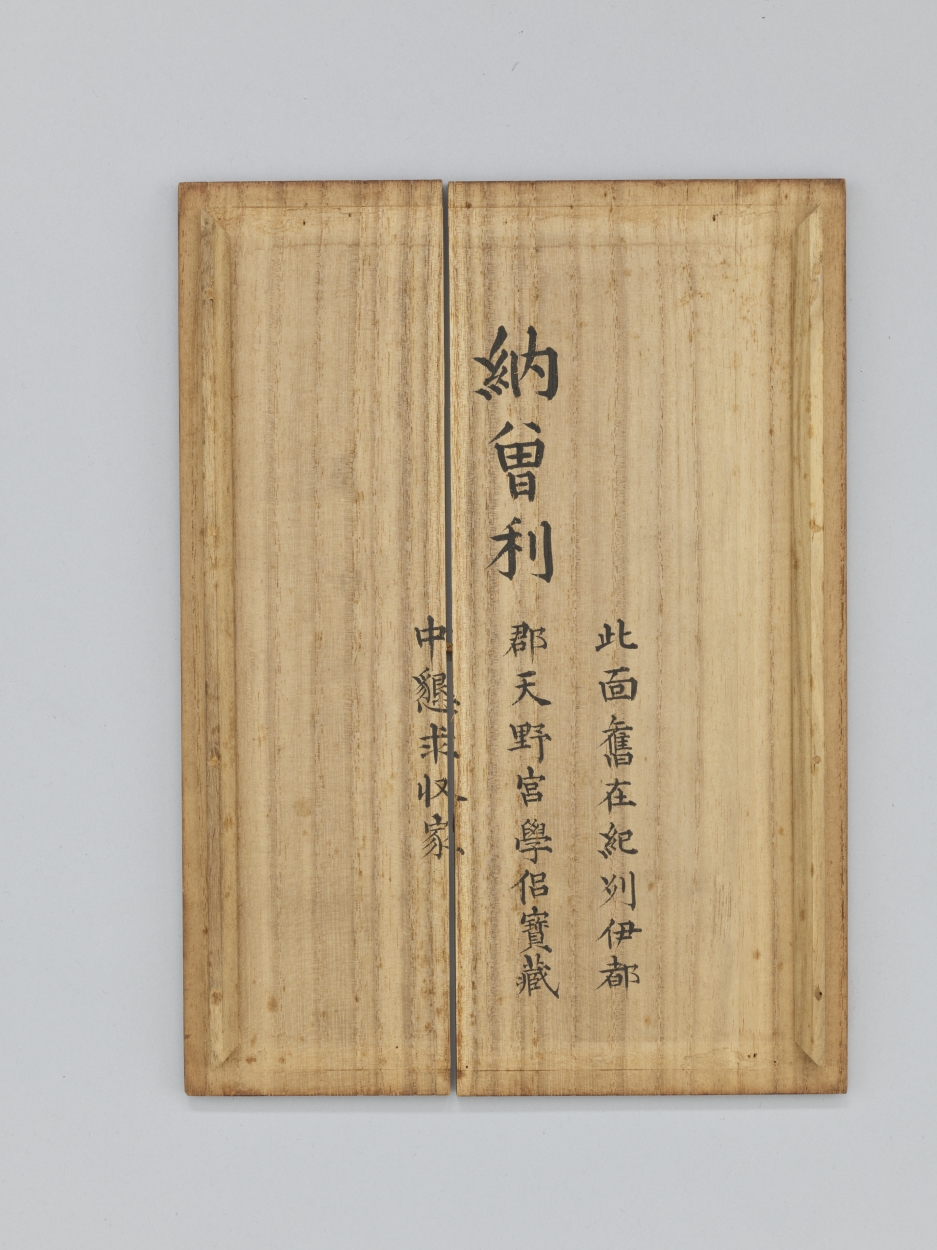 納曽利
此面舊在紀州伊都
郡天野宮學侶寶藏
中懇求収家